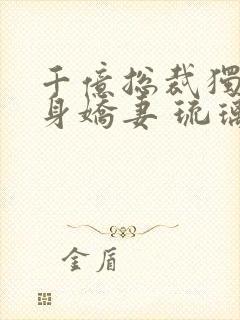 千億總裁獨
身嬌妻 琉璃
金盾